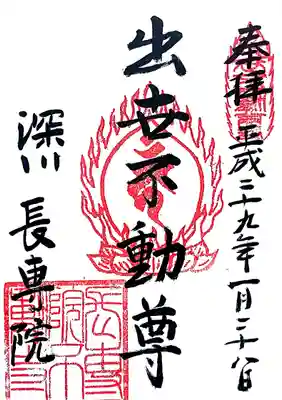 奉拝
平成二十九年一月二十八日
出世不動尊
深川
長専院